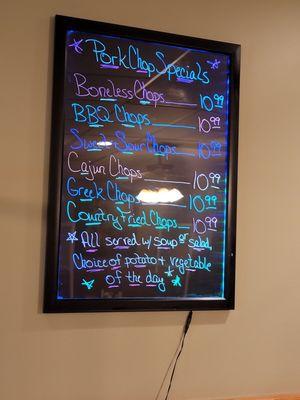 Pork Chop Specials
Boneless Chops 10.99
BBQ Chops 10.99
Sweet + Sour Chops 10.99
Cajun Chops 10.99
Greek Chops 10.99
Country Fried Chops 10.99
All served w/ soup or salad,
Choice of potato + vegetable
of the day